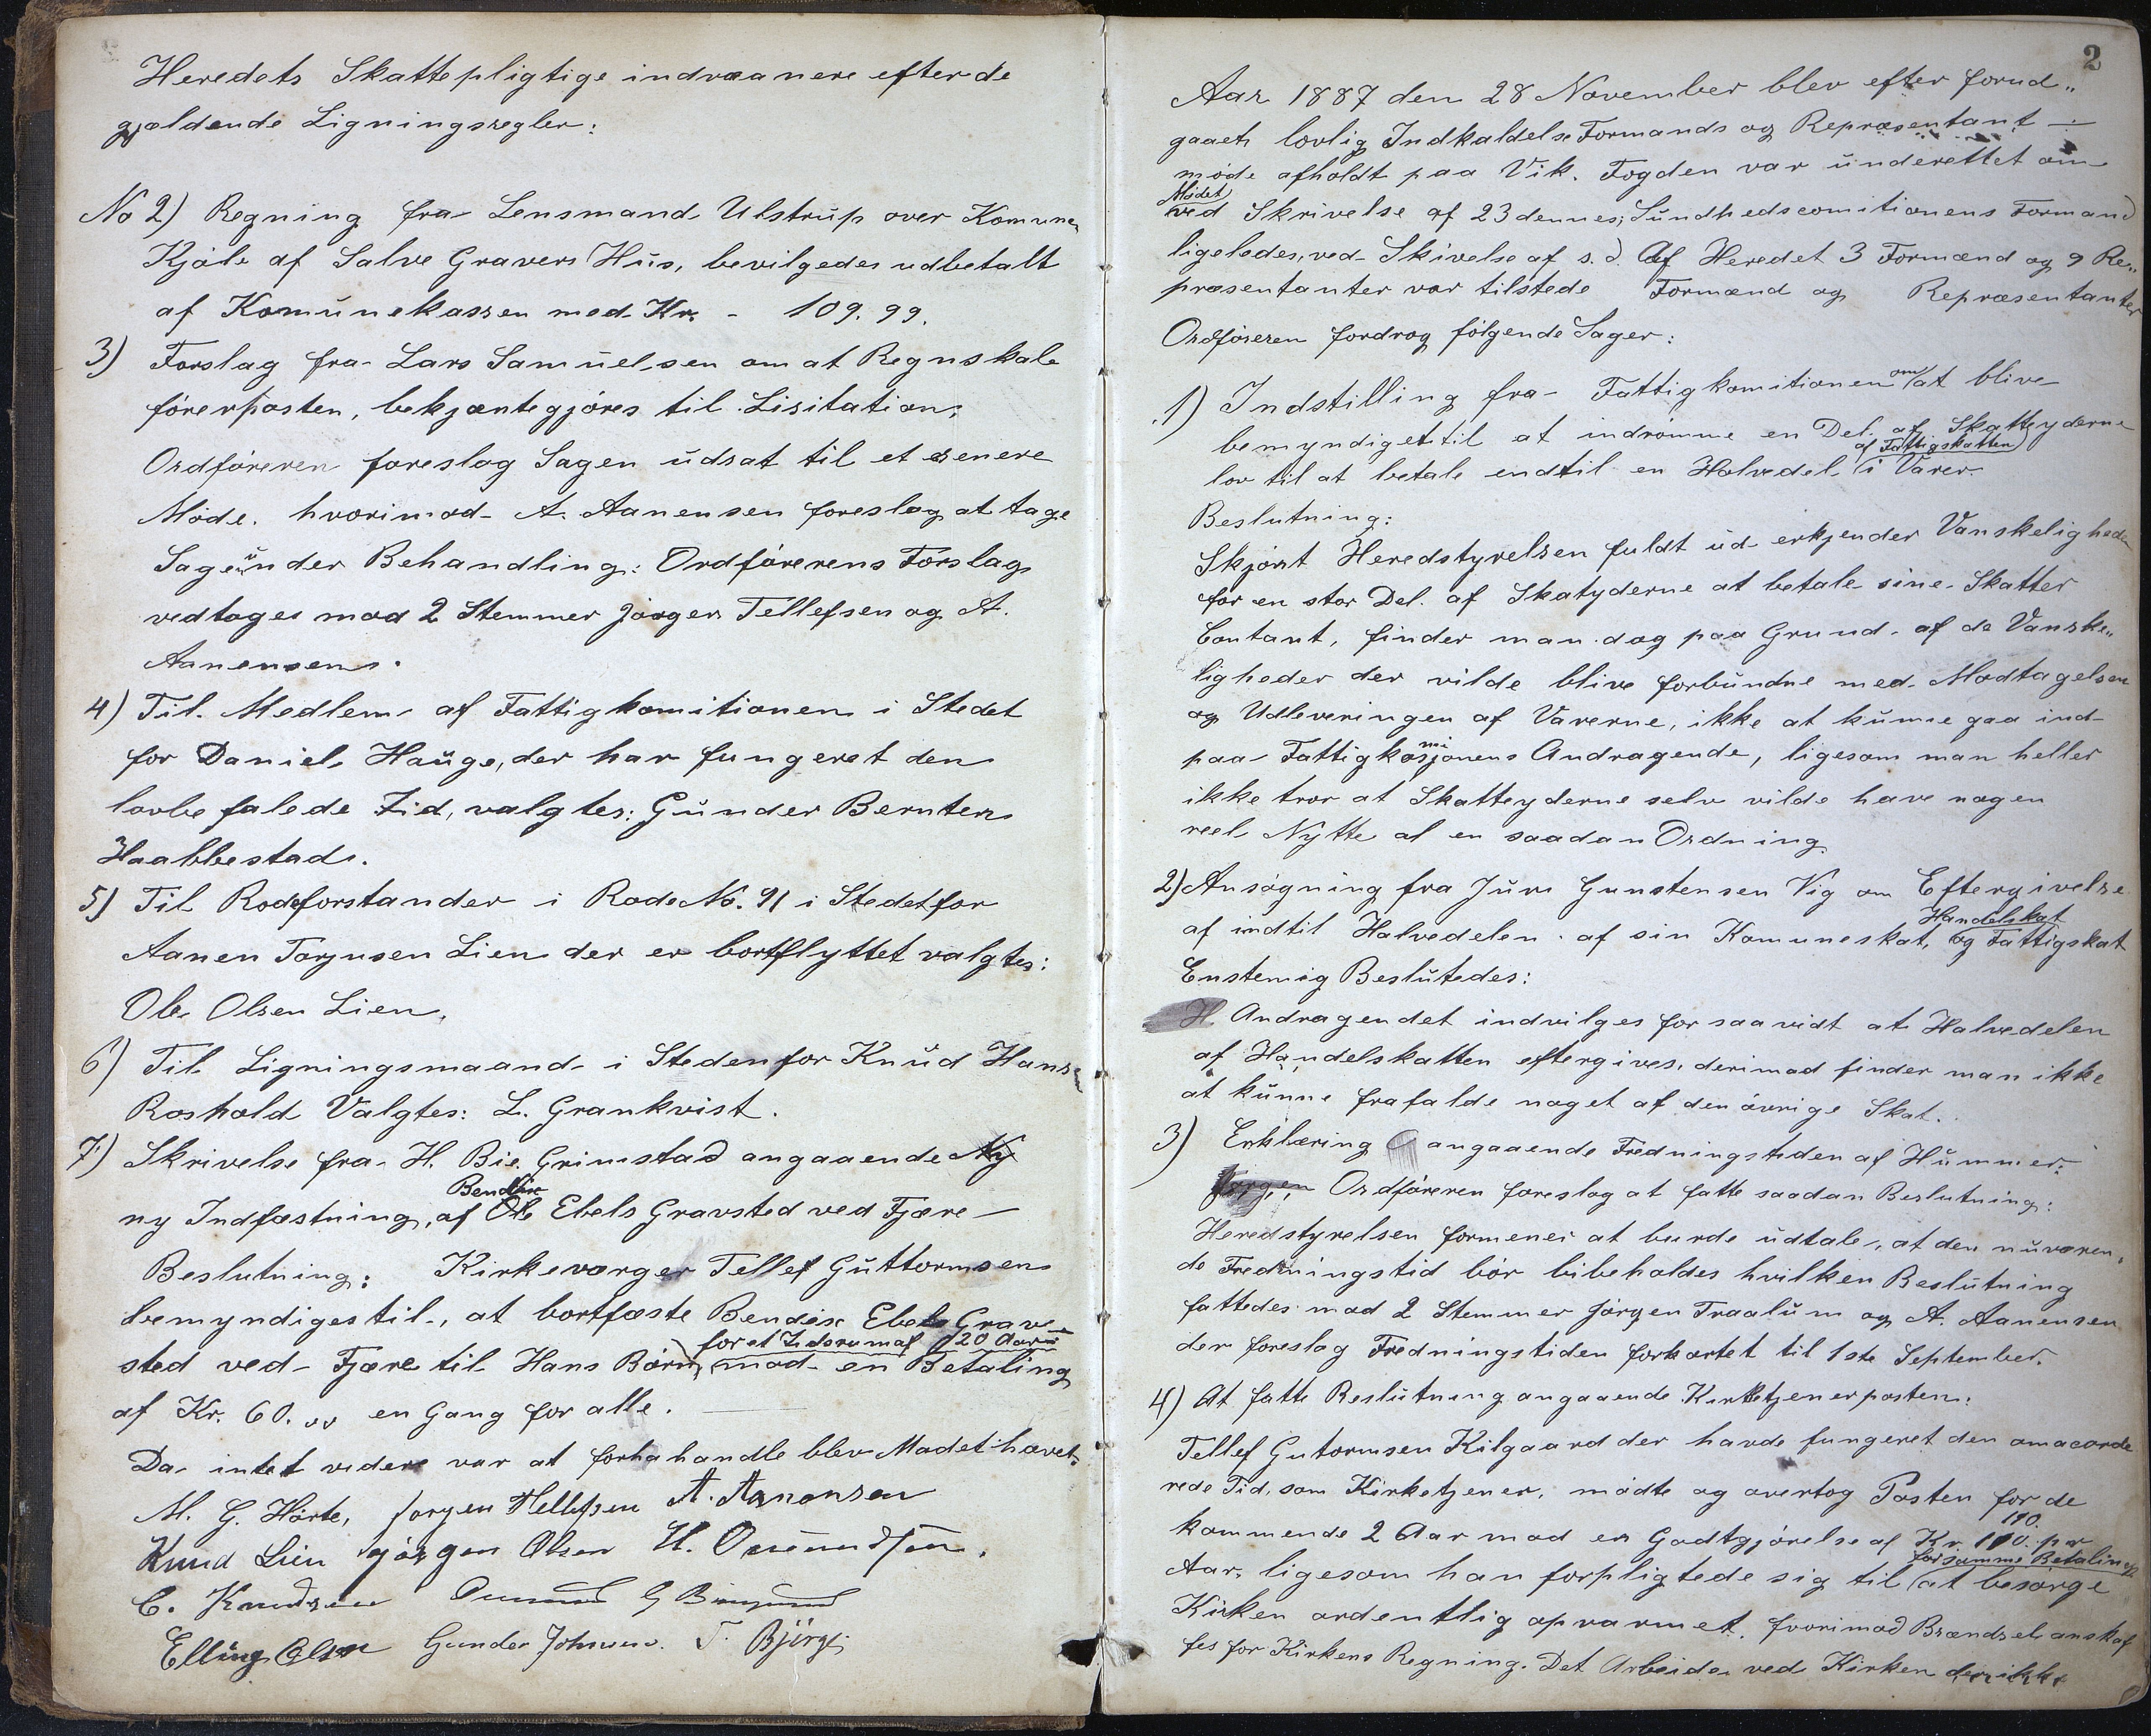 Heredets Skattepligtige indvaanere efter de
gjældende Ligningsregler:
No 2) Regning fra Lensmand Ulstrup over Komunen
Kjøb af Salve Gravers Hus, bevilgedes udbetalt
af Komunekassen med Kr. - 109.99.
3) Forslag fra Lars Samuelsen om at Regnskabs
førerposten, bekjæntegjøres til Lisitation.
Ordføreren foreslog Sagen udsat til et senere
Møde. hvorimod A. Aanensen foreslog at tage
Sagen under Behandling: Ordførerens Forslag
vedtoges mod 2 Stemmer Jørgen Tellefsen og A.
Aanensen.
4) Til Medlem af Fattigkomitionen i Stedet
for Daniel Hauge, der har fungeret den
lovbefalede Tid, valgtes: Gunder Berntsen
Haabbestad.
5) Til Rodeforstander i Rode No. 91 i Stedet for
Aanen Torjusen Lien der er bortflyttet valgtes:
Ole Olsen Lien.
6) Til Ligningsmaand i Steden for Knud Hansen
Roshold Valgtes: L. Grankvist.
7) Skrivelse fra H. Bie Grimstad angaaende Ny
Bendix
ny Indfæstning, af Ole Ebels Gravsted ved Fjære
Beslutning: Kirkeværger Tellef Guttormsen
bemyndiges til, at bortfæste Bendix Ebels Grav
for et Tidsrum af 20 Aar
sted ved Fjære til Hans Børn, mod en Betaling
af Kr. 60.00 en Gang for alle.
Da intet videre var at forhahandle blev Mødet hævet.
M. G. Hørte, Jørgen Tellefsen A. Aanensen
Knud Lien Jørgen Olsen H. Omundsen.
C. Knudsen Omund G
Elling Olsen Gunder Johnsen. T. Bjørge
2
Aar 1887 den 28 November blev efter forud„
gaaet lovlig Indkaldelse Formands og Repræsentant
møde afholdt paa Vik. Fogden var underettet om
Mødet
ved Skrivelse af 23 dennes; Sundhedscomitionens Formand
ligeledes, ved Skivelse af s. d. Af Heredet 3 Formænd og 9 Re„
præsentanter var tilstede Formænd og Repræsentanter
Ordføreren fordrog følgende Sager:
1) Indstilling fra Fattigkomitionen om at blive
bemyndiget til at indrømme en Del af Skatteyderne
af Fattigskatten
lov til at betale endtil en Halvedel i Varer
Beslutning:
Skjønt Heredstyrelsen fuldt ud erkjender Vanskeligheden
for en stor Del af Skatyderne at betale sine Skatter
Contant, finder man dog paa Grund af de Vanske„
ligheder der vilde blive forbundne med Modtagelsen
og Udleveringen af Varerne, ikke at kunne gaa ind
mi
paa Fattigkosjonens Andragende, ligesom man heller
ikke tror at Skatteyderne selv vilde have nogen
reel Nytte af en saadan Ordning.
2) Ansøgning fra Jurn Gunstensen Vig om Eftergivelse
Handelskat
af indtil Halvedelen af sin Komuneskat, og Fattigskat
Enstemig Beslutedes:
H Andragendet indvilges for saavidt at Halvedelen
af Handelskatten eftergives, derimod finder man ikke
at kunne frafalde noget af den øvrige Skat.
3) Erklæring angaaende Fredningstiden af Hummer.
Jørgen Ordføreren foreslog at fatte saadan Beslutning:
Heredstyrelsen formener at burde udtale, at den nuværen„
de Fredningstid bør bibeholdes hvilken Beslutning
fattedes mod 2 Stemmer Jørgen Traalum og A. Aanensen
der foreslog Fredningstiden forkortet til 1ste September.
4) At fatte Beslutning angaaende Kirketjenerposten:
Tellef Gutormsen Kilgaard der havde fungeret den omacorde
rede Tid, som Kirketjener, mødte og overtog Posten for de
110.
kommende 2 Aar mod en Godtgjørelse af Kr. 110. pr
for samme Betaling
Aar, ligesom han forpligtede sig til at besørge
Kirken ordentlig opvarmet, hvorimod Brændsel anskaf
fes for Kirkens Regning. Det Arbeide ved Kirken der ikke